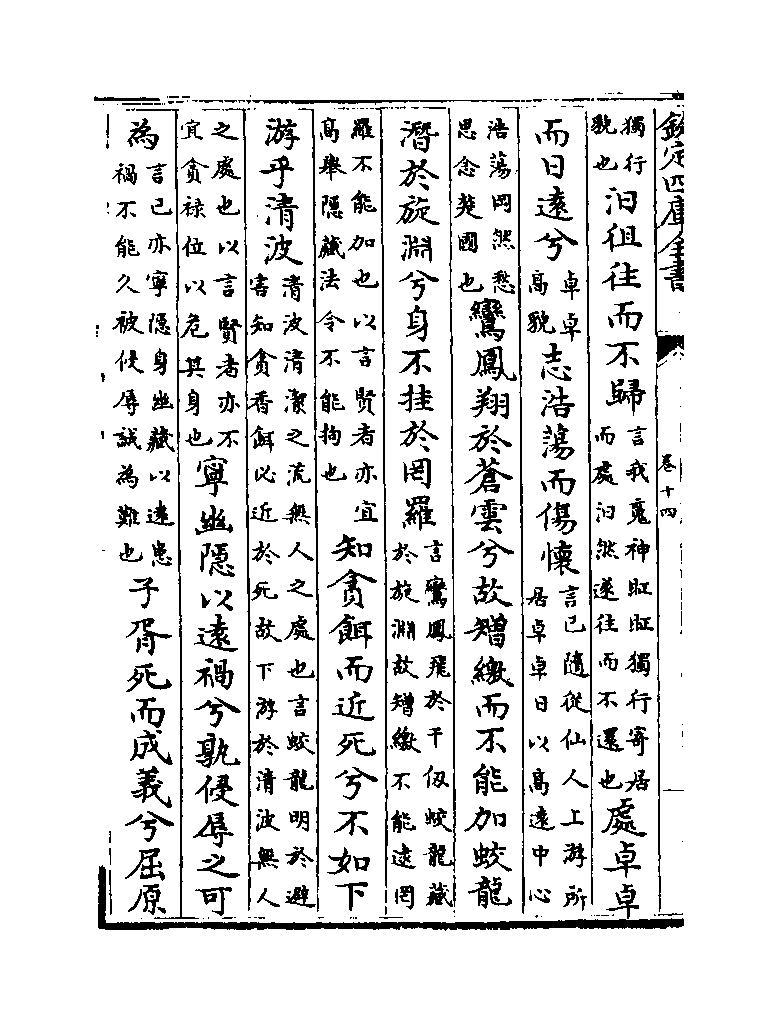 欽定四庫全書 卷十四
獨行貌也汩徂往而不歸言我䰟神眐眐獨行寄居而處汩然遂往而不還也處卓卓
而日遠兮卓卓高貌志浩蕩而傷懷言已隨從仙人上游所居卓卓日以高遠中心
浩蕩罔然愁思念楚國也鸞鳳翔於蒼雲兮故矰繳而不能加蛟龍
潛於旋淵兮身不挂於罔羅言鸞鳳飛於千仭蛟龍藏於旋淵故矰繳不能逮罔
羅不能加也以言賢者亦宜高舉隱藏法令不能拘也知貪餌而近死兮不如下
游乎清波清波清潔之流無人之處也言蛟龍明於避害知貪香餌必近於死故下游於清波無人
之處也以言賢者亦不宜貪禄位以危其身也寧幽隱以遠禍兮孰侵辱之可
為言已亦寧隱身幽藏以遠患禍不能久被侵辱誠為難也子胥死而成義兮屈原